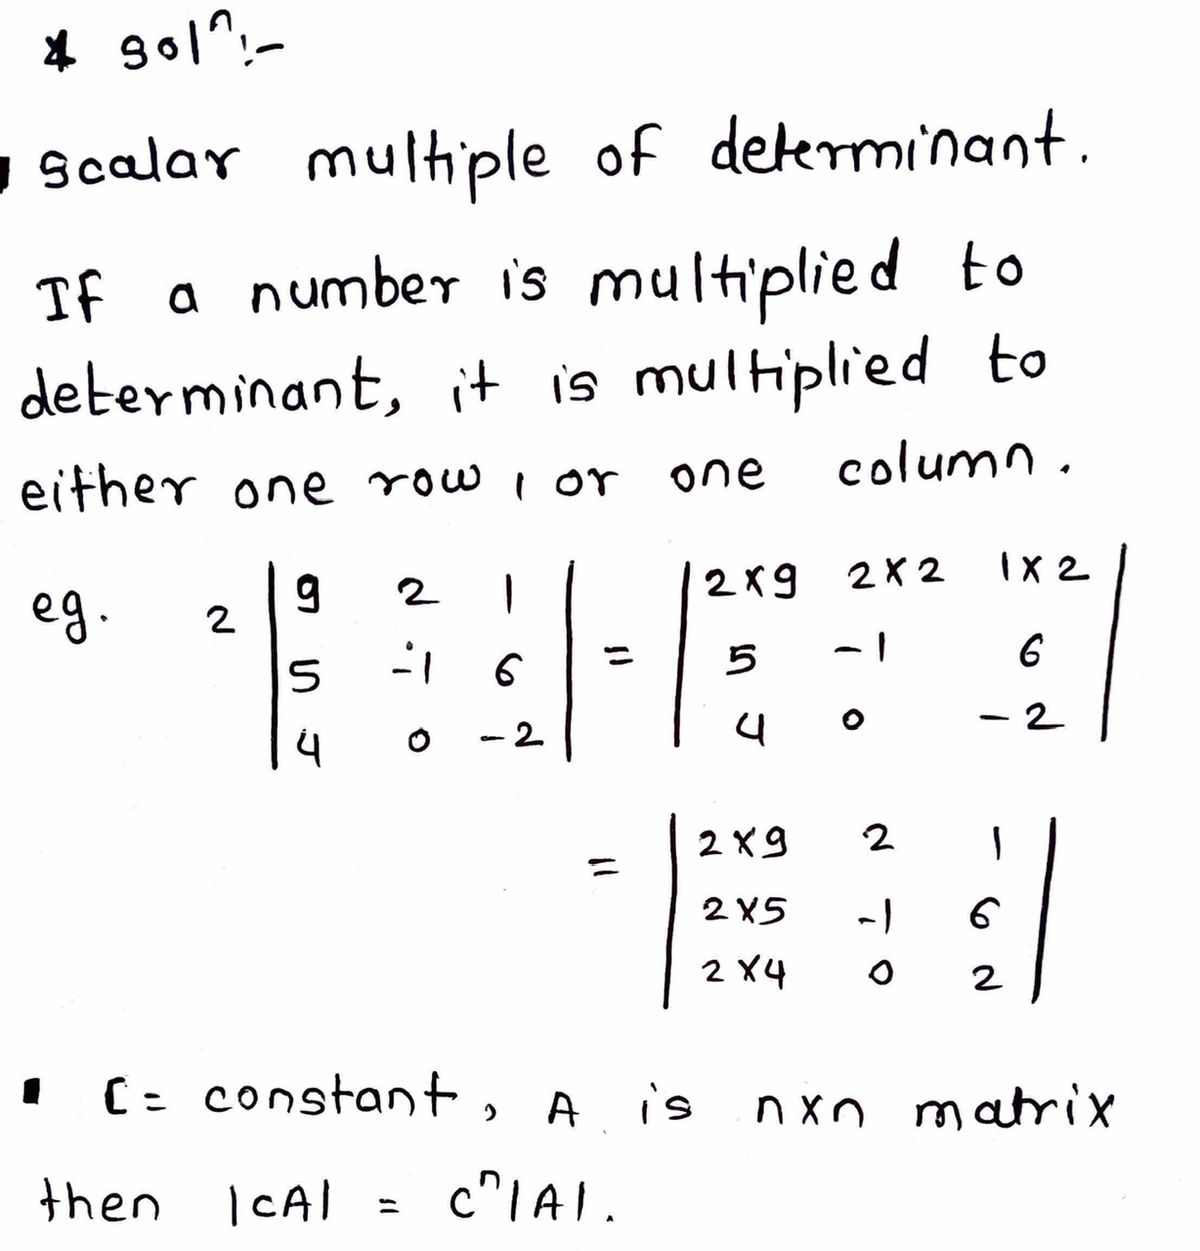 * solⁿ:-
scalar multiple of determinant.
If a number is multiplied to
determinant, it is multiplied to
either one row, or one column.
eg. 2 | 9 2 1 | = | 2×9 2×2 1×2 |
| 5 -1 6 | | 5 -1 6 |
| 4 0 -2 | | 4 0 -2 |
= | 2×9 2 1 |
| 2×5 -1 6 |
| 2×4 0 2 |
▪ C = constant, A is n×n matrix
then |cA| = cⁿ|A|.